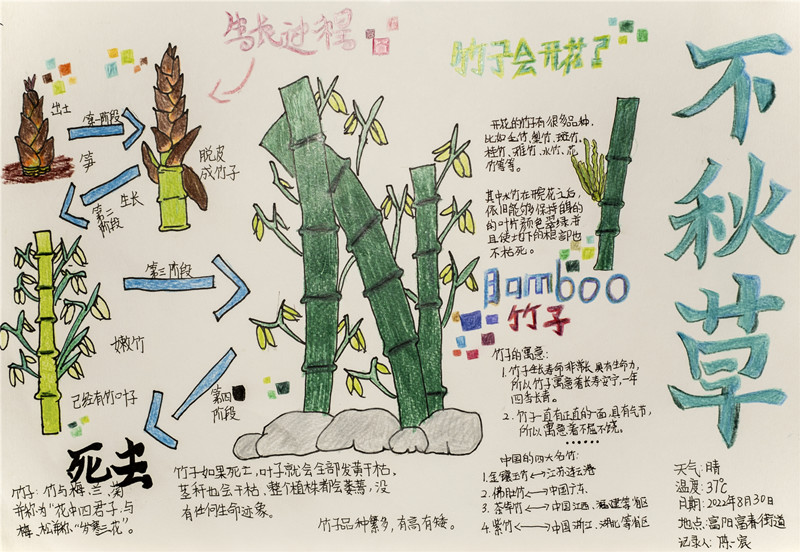 生长过程
竹子会开花了
不秋草
出土
第一阶段
笋
脱皮
成竹子
生长
第二
阶段
第三阶段
嫩竹
已经有竹叶子
第四
阶段
死去
开花的竹子有很多品种,
比如毛竹、斑竹、
桂竹、雅竹、水竹、花
竹等等。
其中水竹在开花之后,
依旧能够保持自身的
的叶片颜色翠绿者
且使土地下的根部也
不枯死。
Bamboo
竹子
竹子的寓意:
1. 竹子生长寿命非常长具有生命力,
所以竹子寓意着长寿安宁,一年
四季长青。
2. 竹子一直有正直的一面,具有气节,
所以寓意着不屈不挠。
......
中国的四大名竹:
1.金镶玉竹↔江苏连云港
2.佛肚竹↔中国广东。
3.茶杆竹↔中国江西、福建等省区
4.紫竹↔中国浙江、湖北等省区
竹子: 竹与梅、兰、菊
并称为“花中四君子”与
梅、松并称“岁寒三友”。
竹子如果死亡,叶子就会全部发黄干枯,
茎秆也会干枯,整个植株都会萎蔫,没
有任何生命迹象。
竹子品种繁多,有高有矮。
天气:晴
温度:37℃
日期:2022年8月30日
地点:富阳富春街道
记录人:陈一宸